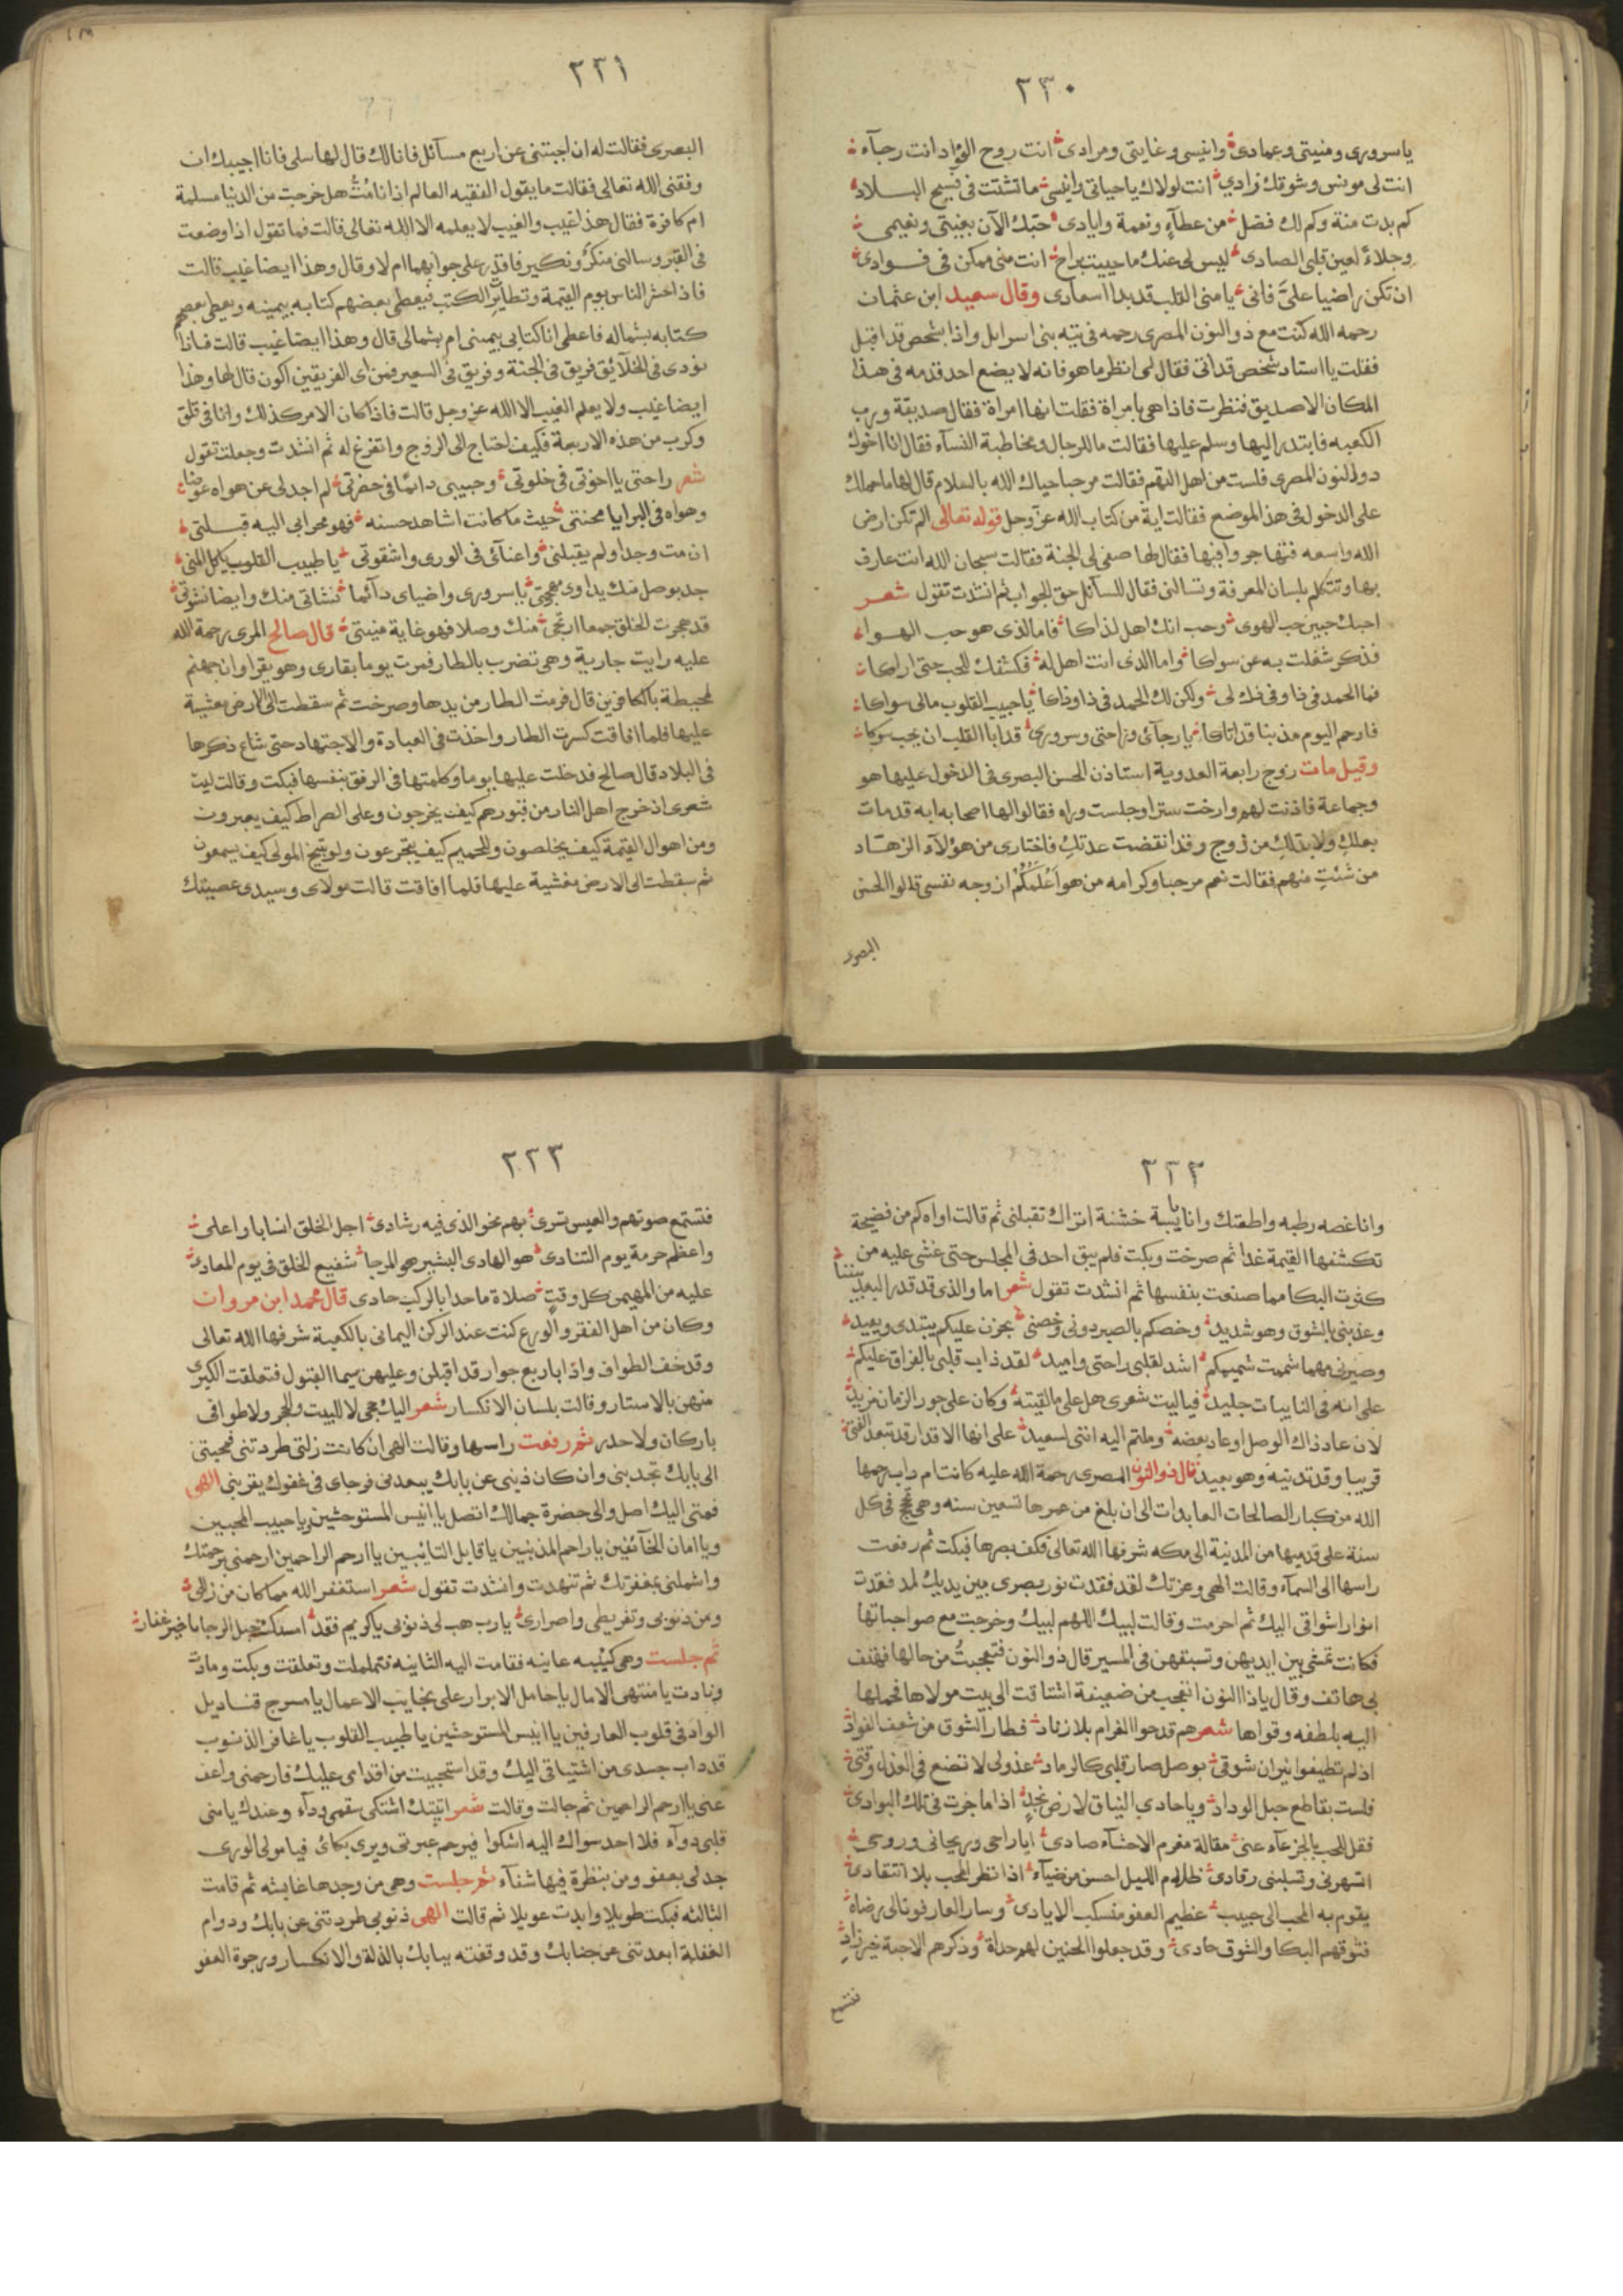 ٢٣٠
ياسرورى ومنيتى وعمادى وانيسى وغايتى ومرادى انت روح الفؤاد انت رجآء
انت لى مونس وشوقك زادي انت لولاك ياحياتى وانيسى ماتشتت فى فسيح البلاد
كم بدت منة وكم لك فضل من عطآءٍ ونعمة وايادى حبّك الآن بغيتى ونعيمى
وجلاءٌ لعين قلبى الصادى ليس لى عنك ماحييت براح انت منى ممكن فى فوادى
ان تكن راضيا علىّ فانى يامنى القلب قد بدا اسعادى وقال سعيد ابن عثمان
رحمه الله كنت مع ذو النون المصرى رحمه فى تيه بنى اسرايل واذا بشخص قد اقبل
فقلت يا استاد شخص قد اتى فقال لى انظر ما هو فانه لا يضع احد قدمه فى هذا
المكان الاصديق فنظرت فاذا هى بامراة فقلت انها امراة فقال صديقة ورب
الكعبه فابتدر اليها وسلم عليها فقالت ما للرجال ومخاطبة النسآء فقال انا اخوك
ذو النون المصرى فلست من اهل التهم فقالت مرحبا حياك الله بالسلام قال لها ما حملك
على الدخول فى هذا الموضع فقالت اية من كتاب الله عز وجل قوله تعالى الم تكن ارض
الله واسعه فتهاجروا فيها فقال لها صفى لى المحبة فقالت سبحان الله انت عارف
بها وتتكلم بلسان المعرفة وتسالنى فقال للسآئل حق الجواب ثم انشدت تقول شعر
احبك حبين حب الهوى وحب انك اهل لذاكا فاما الذى هو حب الهوا
فذكر شغلت به عن سواكا واما الذى انت اهل له فكشفك للحب حتى اراكا
فما الحمد فى ذا وفى ذاك لى ولكن لك الحمد فى ذا وذاكا ياحبيب القلوب مالى سواكا
فارحم اليوم مذنبا قد اتاكا يارجآئى وراحتى وسرورى قد ابا القلب ان يحب سوكا
وقيل مات زوج رابعة العدوية استاذن الحسن البصرى فى الدخول عليها هو
وجماعة فاذنت لهم وارخت سترا وجلست وراه فقالوا لها اصحابه انه قد مات
بعلكِ ولا بد لكِ من زوج وقد انقضت عدتكِ فاختارى من هؤلآء الزهاد
من شئتِ منهم فقالت نعم مرحبا وكرامه من هو اَعْلَمَكُمْ ازوجه نفسى قالوا الحسن
البصرى
٢٣١
البصرى فقالت له ان اجبتنى عن اربع مسآئل فانا لك قال لها سلى فانا اجيبك ان
وفقنى الله تعالى فقالت ما يقول الفقيه العالم اذا انا مُتُّ هل خرجت من الدنيا مسلمة
ام كافرة فقال هذا غيب والغيب لا يعلمه الا الله تعالى قالت فما تقول اذا وضعت
فى القبر وسالنى منكرٌ ونكير فاقدر على جوابهما ام لا وقال وهذا ايضا غيب قالت
فاذا حشر الناس يوم القيمة وتطاير الكتب فيعطى بعضهم كتابه بيمينه ويعطى بعضهم
كتابه بشماله فاعطى انا كتابى بيمينى ام بشمالى قال وهذا ايضا غيب قالت فاذا
نودى فى الخلآئق فريق فى الجنة وفريق فى السعير فمن اى الفريقين اكون قال لها وهذا
ايضا غيب ولا يعلم الغيب الا الله عز وجل قالت فاذا كان الامر كذلك وانا فى قلق
وكرب من هذه الاربعة فكيف احتاج الى الزوج واتفرغ له ثم انشدت وجعلت تقول
شعر راحتى يا اخوتى فى خلوتى وحبيبى دائما فى حضرتى لم اجد لى عن هواه عوضا
وهواه فى البرايا محنتى حيث ما كانت اشاهد حسنه فهو محرابى اليه قبلتى
ان مت وجدا ولم يقبلنى واعنآئى فى الورى واشقوتى ياطبيب القلوب ياكل المنى
جد بوصل منك يداوى مهجتى ياسرورى واضياى دآئما نشاتى منك وايضا نشوتى
قد هجرت الخلق جمعا ارتجى منك وصلا فهو غاية منيتى قال صالح المرى رحمة الله
عليه رايت جارية وهى تضرب بالطار فمرت يوما بقارى وهو يقرا وان جهنم
لمحيطة بالكافرين قال فرمت الطار من يدها وصرخت ثم سقطت الى الارض مغشية
عليها فلما افاقت كسرت الطار واخذت فى العبادة والاجتهاد حتى شاع ذكرها
فى البلاد قال صالح فدخلت عليها يوما وكلمتها فى الرفق بنفسها فبكت وقالت ليت
شعرى اذ خرج اهل النار من قبورهم كيف يخرجون وعلى الصراط كيف يعبرون
ومن اهوال القيمة كيف يخلصون وللحميم كيف يتجرعون ولتوبيخ المولى كيف يسمعون
ثم سقطت الى الارض مغشية عليها فلما افاقت قالت مولاى وسيدى عصيتك
٢٣٢
وانا غصه رطبه واطعتك وانا يابسة خشنة اتراك تقبلنى ثم قالت اواه كم من فضيحة
تكشفها القيمة غدا ثم صرخت وبكت فلم يبق احد فى المجلس حتى غشى عليه من
كثرت البكا مما صنعت بنفسها ثم انشدت تقول شعر اما والذى قد قدر البعد بيننا
وعذبنى بالشوق وهو شديد وخصكم بالصبر دونى وخصنى بحزن عليكم يبتدى ويعيد
وصيرنى مهما شممت شميمكم اشد لقلبى راحتى واميد لقد ذاب قلبى بالفراق عليكم
على انه فى النايبات جليد فياليت شعرى هل على ما لقيته وكان على جور الزمان مزيد
لان عاد ذاك الوصل او عاد بعضه وملتم اليه اننى لسعيد على انها الاقدار قد تبعد الفتى
قريبا وقد تدنيه وهو بعيد قال ذو النون المصرى رحمة الله عليه كانت ام داب رحمها
الله من كبار الصالحات العابدات الى ان بلغ من عمرها تسعين سنه وهى تحج فى كل
سنة على قدميها من المدينة الى مكه شرفها الله تعالى فكف بصرها فبكت ثم رفعت
راسها الى السمآء وقالت الهى وعزتك لقد فقدت نور بصرى بين يديك لما فقدت
انوار اشواقى اليك ثم احرمت وقالت لبيك اللهم لبيك وخرجت مع صواحباتها
فكانت تمشى بين ايديهن وتسبقهن فى المسير قال ذو النون فتعجبتُ من حالها فهتف
بى هاتف وقال ياذا النون اتعجب من ضعيفة اشتاقت الى بيت مولاها فحملها
اليه بلطفه وقواها شعر هم قدحوا الغرام بلا زناد فطار الشوق من شعف الفواد
اذ لم تطيفوا نيران شوقى بوصل صار قلبى كالرماد عذولى لا تضع فى العذل وقتى
فلست بقاطع حبل الوداد وياحادى النياق لارض نجدٍ اذا ما جزت فى تلك البوادى
فقل للحب بالجزعآء عنى مقالة مغرم الاحشآء صادى ايا راحى وريحانى وروحى
اتهجرنى وتسلبنى رقادى ظلام الليل احسن من ضيآء اذا نظر المحب بلا انتقادى
يقوم به المحب الى حبيب عظيم العفو منسكب الايادى وسار العارفون الى رضاه
فشوقهم البكا والشوق حادى وقد جعلوا الحنين لهم حداة وذكرهم الاحبة خير زاد
فتسمع
٢٣٣
فتستمع صوتهم والعيس تسرى بهم نحو الذى فيه رشادى اجل الخلق انسابا واعلى
واعظم حرمة يوم التنادى هو الهادى البشير هو المرجا شفيع الخلق فى يوم المعاد
عليه من المهيمن كل وقتٍ صلاة ما حدا بالركب حادى قال محمد ابن مروان
وكان من اهل الفقر والورع كنت عند الركن اليمانى بالكعبة شرفها الله تعالى
وقد خف الطواف واذا باربع جوار قد اقبلن وعليهن سيما القبول فتعلقت الكبرى
منهن بالاستار وقالت بلسان الانكسار شعر اليك حجى لا للبيت والحجر ولا طوافى
باركان ولا حدر ثم رفعت راسها وقالت الهى ان كانت زلتى طردتنى فمحبتى
الى بابك تجدبنى وان كان ذنبى عن بابك يبعدنى فرجاى فى عفوك يقربنى الهى
فمتى اليك اصل والى حضرة جمالك اتصل يا انيس المستوحشين وياحبيب المحبين
ويا امان الخآئفين ياراحم المذنبين ياقابل التايبين ياارحم الراحمين ارحمنى برحمتك
واشملنى بمغفرتك ثم تنهدت وانشدت تقول شعر استغفر الله مما كان من زللى
ومن ذنوبى وتفريطى واصرارى يارب هب لى ذنوبى ياكريم فقد امسكت حبل الرجا ياخير غفار
ثم جلست وهى كئيبه عانيه فقامت اليه الثانيه فتململت وتعلقت وبكت ومادت
ونادت يامنتهى الامال ياحامل الابرار على نجايب الاعمال يامسرج قناديل
الواد فى قلوب العارفين يا انيس المستوحشين ياطبيب القلوب ياغافر الذنوب
قد داب جسدى من اشتياقى اليك وقد استحييت من اقدامى عليك فارحمنى واعف
عنى ياارحم الراحمين ثم جالت وقالت شعر اتيتك اشتكى سقمى ودآء وعندك يامنى
قلبى دوآء فلا احد سواك اليه اشكوا فيرحم عبرتى ويرى بكائى فيامولى الورى
جد لى بعفو ومن بنظرة فيها شفآء ثم جلست وهى من وجدها غايبه ثم قامت
الثالثه فبكت طويلا وابدت عويلا ثم قالت الهى ذنوبى طردتنى عن بابك ودوام
الغفلة ابعدتنى عن جنابك وقد وقفت ببابك بالذلة والانكسار ورجوة العفو